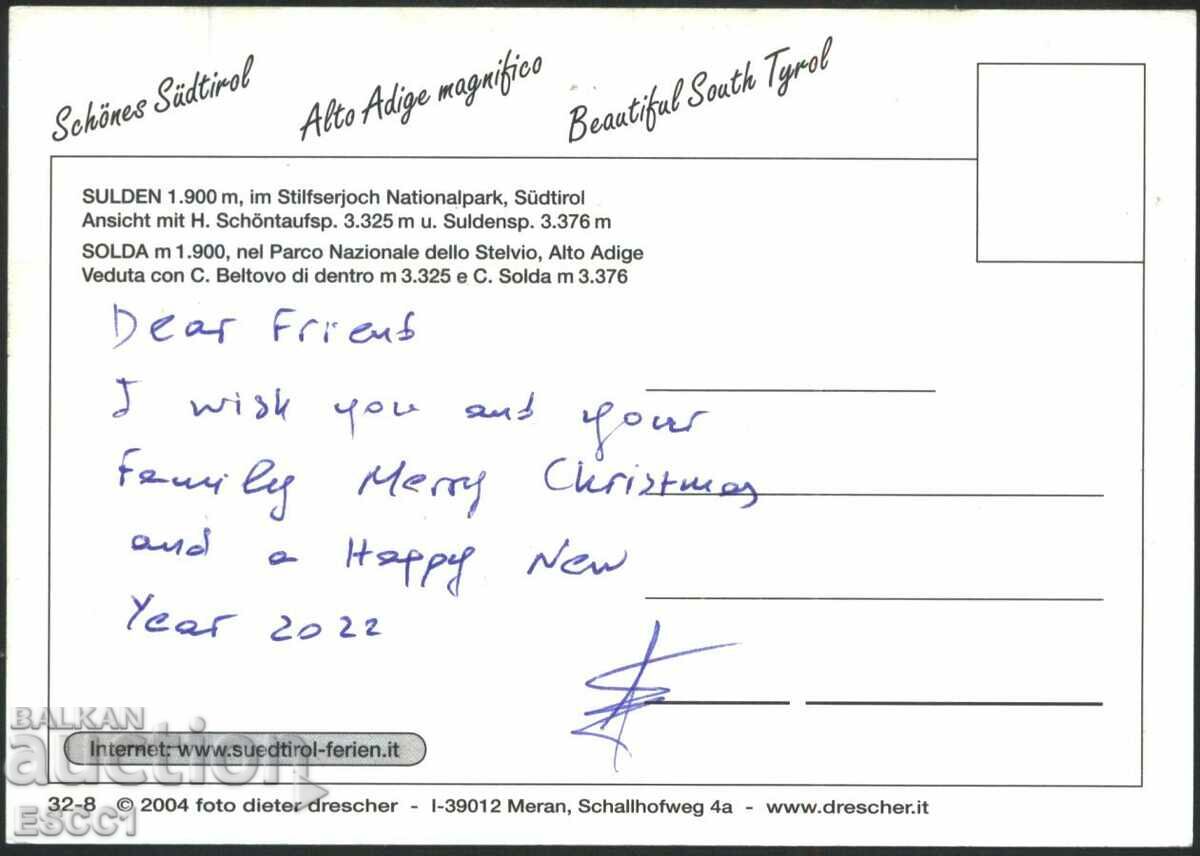 Schönes Südtirol
Alto Adige magnifico
Beautiful South Tyrol
SULDEN 1.900 m, im Stilfserjoch Nationalpark, Südtirol
Ansicht mit H. Schöntaufsp. 3.325 m u. Suldensp. 3.376 m
SOLDA m 1.900, nel Parco Nazionale dello Stelvio, Alto Adige
Veduta con C. Beltovo di dentro m 3.325 e C. Solda m 3.376
Dear Friend
I wish you and your
Family Merry Christmas
and a Happy New
Year 2022
BALKAN
auction
Internet: www.suedtirol-ferien.it
32-8 © 2004 foto dieter drescher - I-39012 Meran, Schallhofweg 4a - www.drescher.it
ESCC1